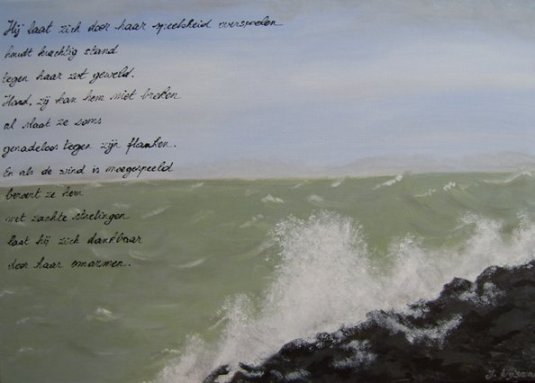 Hij laat zich door haar speelsheid overspoelen
houdt krachtig stand
tegen haar zot geweld.
Hard, zij kan hem niet breken
al slaat ze soms
genadeloos tegen zijn flanken.
En als de wind is moegespeeld
beroert ze hem
met zachte strelingen
laat hij zich dankbaar
door haar omarmen.
J.